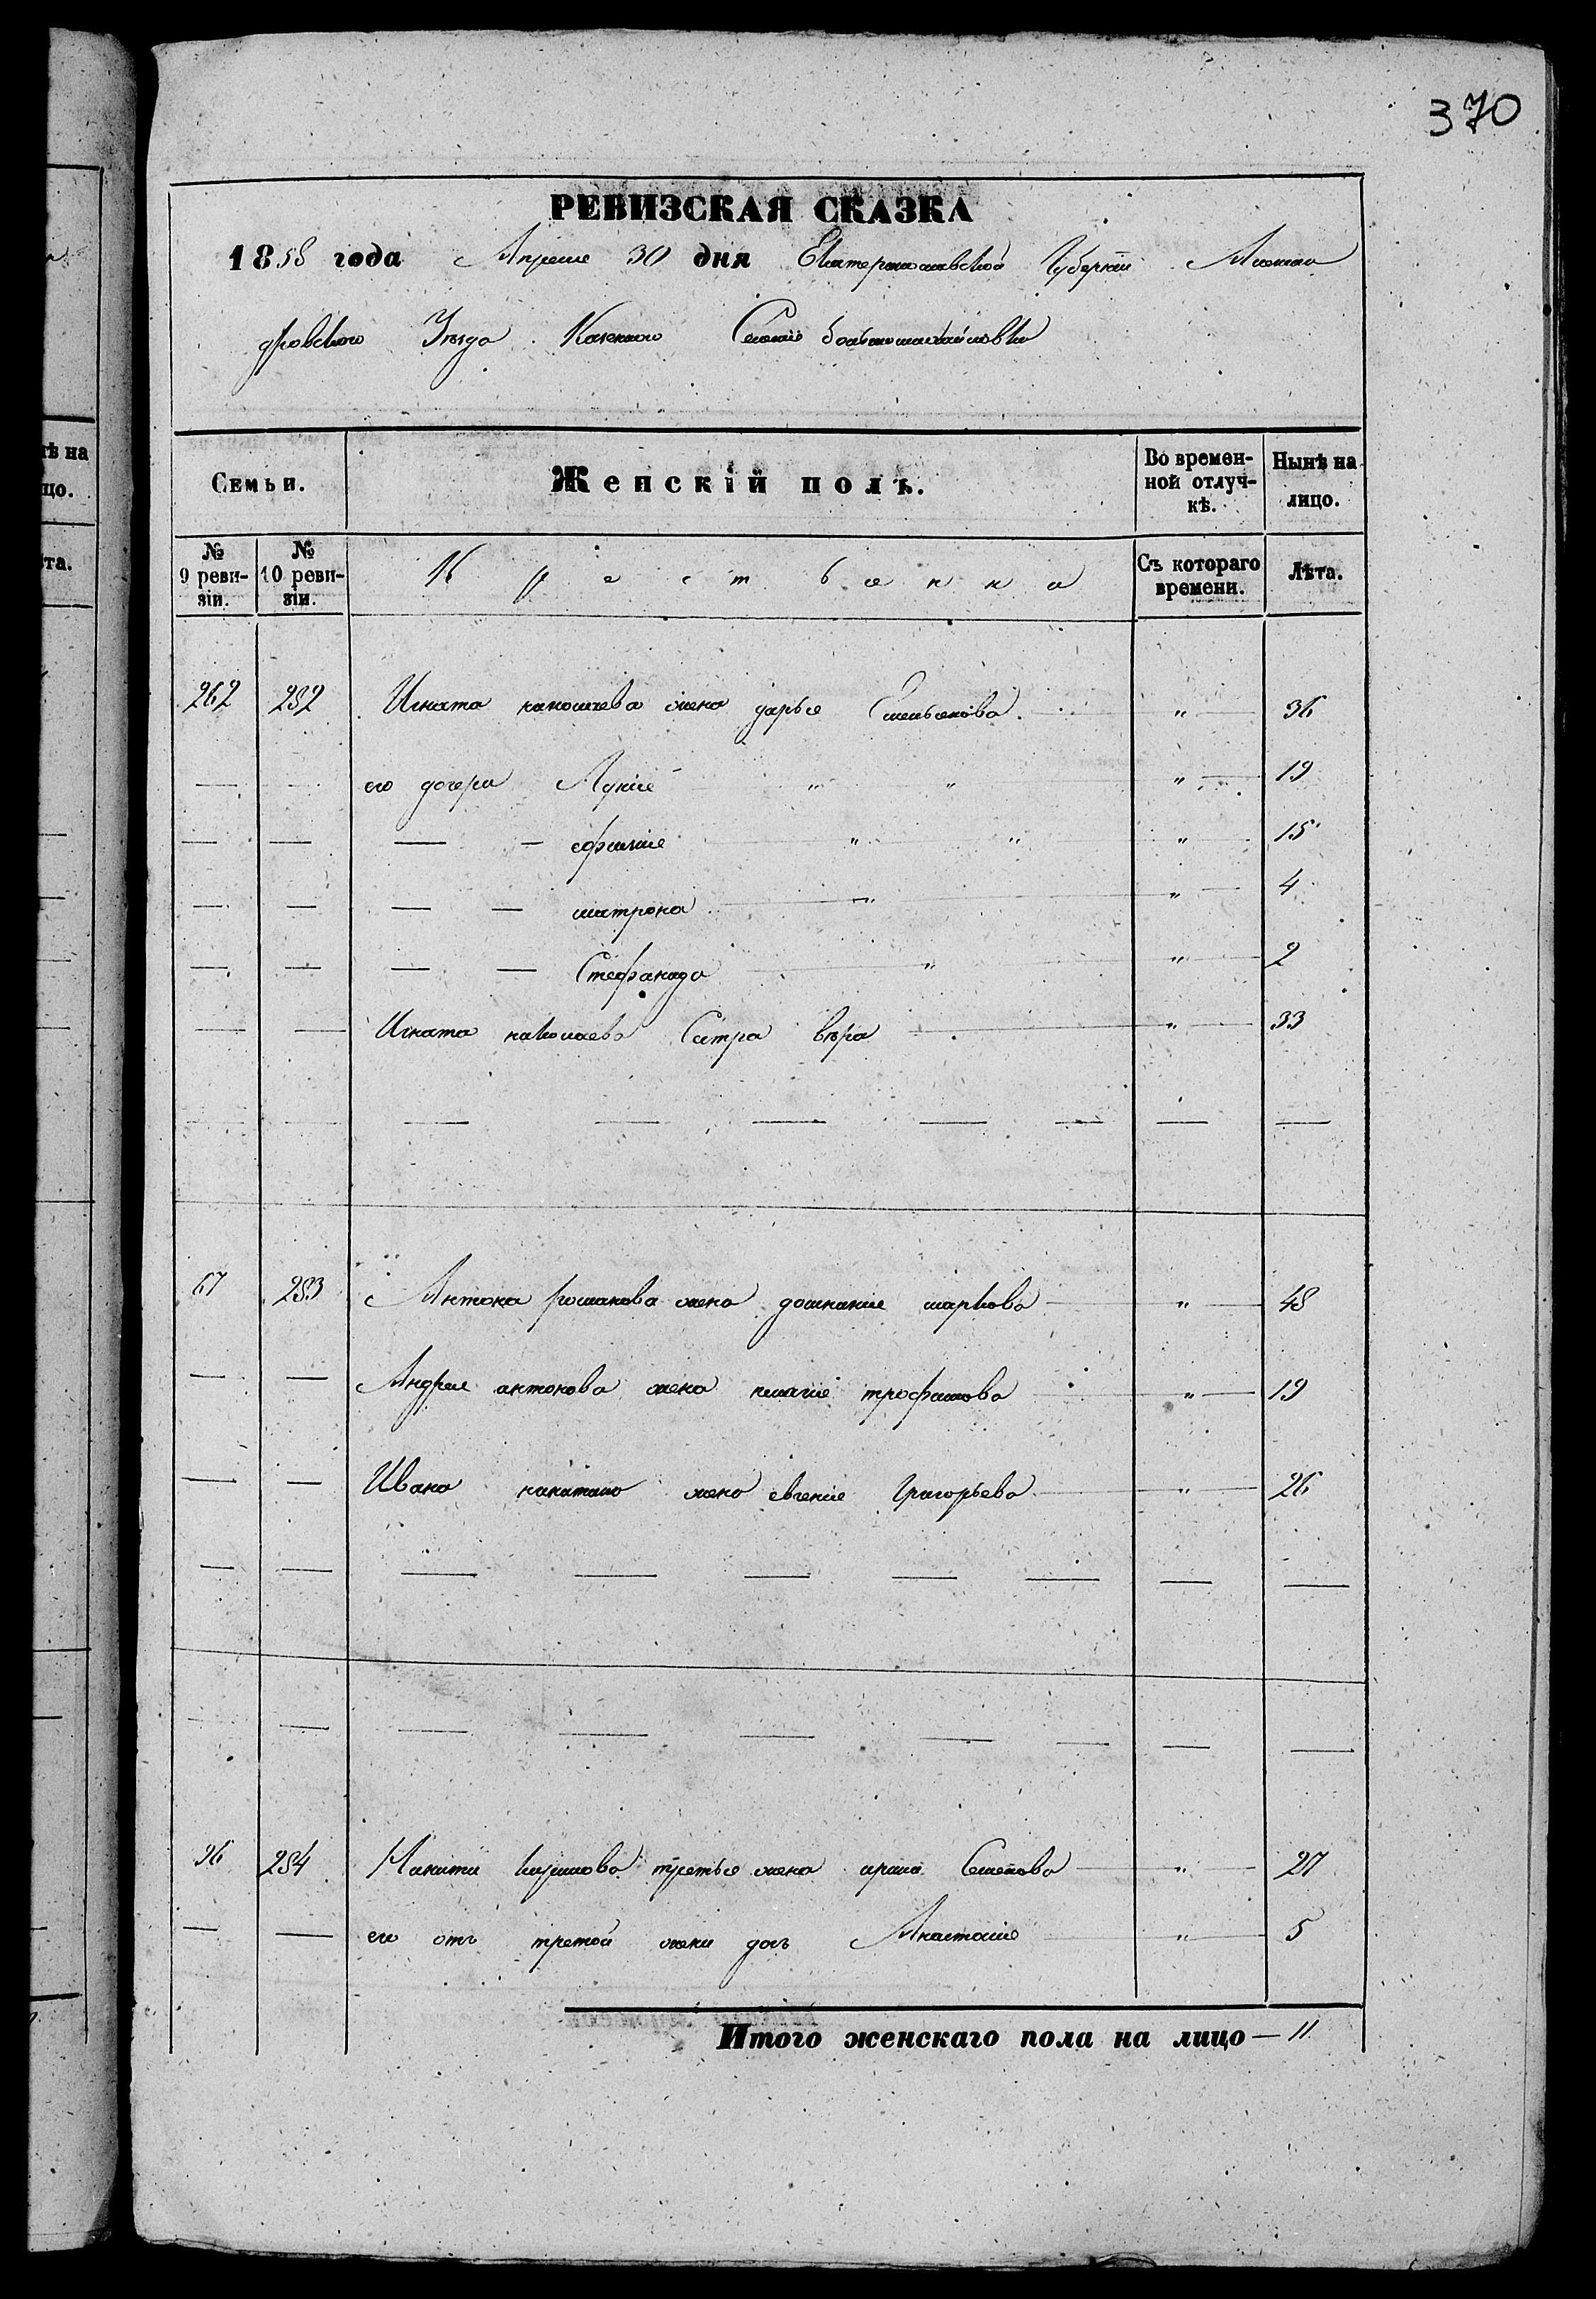 370
РЕВИЗСКАЯ СКАЗКА
1858 года Апреля 30 дня Екатеринославской Губернии Алексан
дровского Уезда Казенного Селение большомихайловки
нѣ на
цо.
та.
Семьи.
Женскій полъ.
Во времен-
ной отлуч-
кѣ.
Нынѣ на
лицо.
№
9 реви-
зіи.
№
10 реви-
зіи.
К р е с т ь я н к а
Съ котораго
времени.
Лѣта.
262 282 Игната николаева жена дарья Емельянова " 36
— — его дочери Лукия " " " 19
— — — — ефимия " " " 15
— — — — матрона " " 4
— — — — Стефанида " " 2
— — Игната николаева Сестра вѣра " 33
67 283 Антона романова жена домникия маркова " 48
— — Андрея антонова жена трофимова " 19
— — Ивана никитина жена евгения Григорьева " 26
96 284 Никиты третья жена ирина Семенова " 27
— — его отъ третой жены дочь Анастасия " 5
Итого женскаго пола на лицо — 11